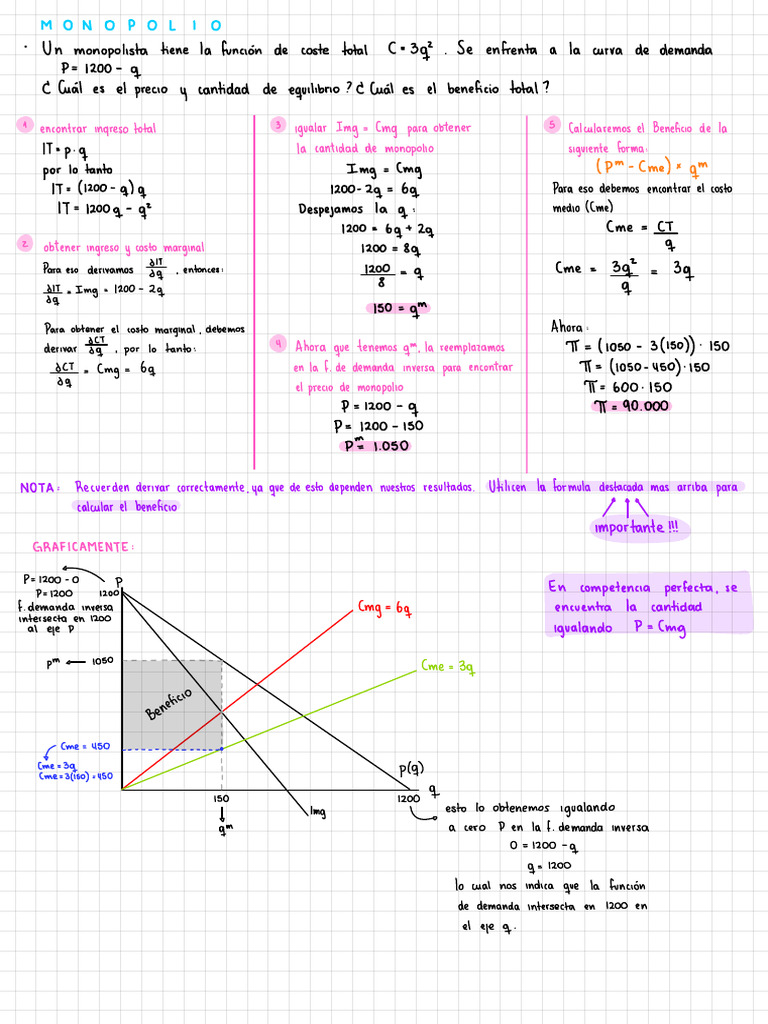 MONOPOLIO
· Un monopolista tiene la función de coste total C = 3q². Se enfrenta a la curva de demanda
P = 1200 - q
¿Cuál es el precio y cantidad de equilibrio? ¿Cuál es el beneficio total?
1 encontrar ingreso total
IT = p·q
por lo tanto
IT = (1200 - q) q
IT = 1200q - q²
2 obtener ingreso y costo marginal
Para eso derivamos ∂IT/∂q, entonces:
∂IT/∂q = Img = 1200 - 2q
Para obtener el costo marginal, debemos
derivar ∂CT/∂q, por lo tanto:
∂CT/∂q = Cmg = 6q
3 igualar Img = Cmg para obtener
la cantidad de monopolio
Img = Cmg
1200 - 2q = 6q
Despejamos la q:
1200 = 6q + 2q
1200 = 8q
1200/8 = q
150 = qᵐ
4 Ahora que tenemos qᵐ, la reemplazamos
en la f. de demanda inversa para encontrar
el precio de monopolio
P = 1200 - q
P = 1200 - 150
Pᵐ = 1.050
5 Calcularemos el Beneficio de la
siguiente forma:
(Pᵐ - Cme) * qᵐ
Para eso debemos encontrar el costo
medio (Cme)
Cme = CT/q
Cme = 3q²/q = 3q
Ahora:
π = (1050 - 3(150)) · 150
π = (1050 - 450) · 150
π = 600 · 150
π = 90.000
NOTA: Recuerden derivar correctamente, ya que de esto dependen nuestros resultados. Utilicen la formula destacada mas arriba para
calcular el beneficio
importante!!!
GRAFICAMENTE:
P = 1200 - 0
P = 1200
f. demanda inversa
intersecta en 1200
al eje P
P
1200
Cmg = 6q
pᵐ ← 1050
Cme = 3q
Beneficio
Cme = 450
Cme = 3q
Cme = 3(150) = 450
P(q)
q
150
1200
Img
qᵐ
En competencia perfecta, se
encuentra la cantidad
igualando P = Cmg
esto lo obtenemos igualando
a cero P en la f. demanda inversa
0 = 1200 - q
q = 1200
lo cual nos indica que la función
de demanda intersecta en 1200 en
el eje q.